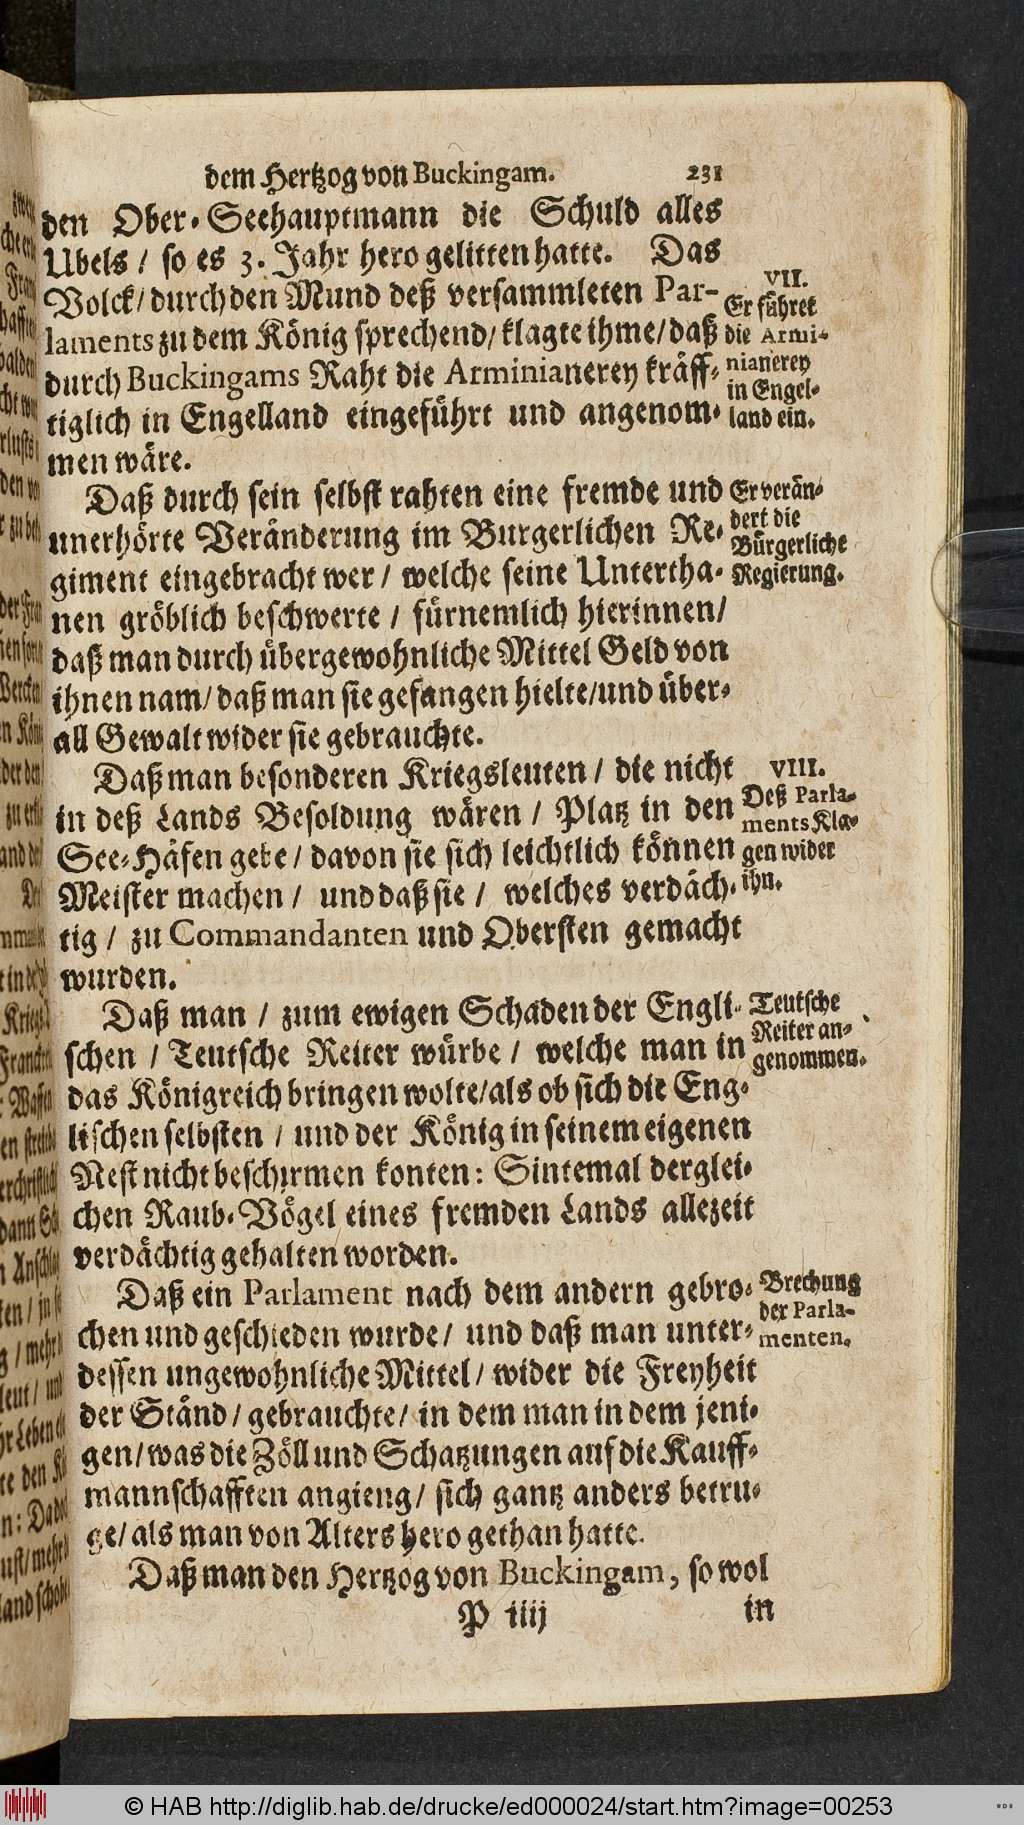 dem Hertzog von Buckingam. 231
den Ober-Seehauptmann die Schuld alles
Ubels / so es 3. Jahr hero gelitten hatte. Das
Volck / durch den Mund deß versammleten Par-
laments zu dem König sprechend / klagte ihme / daß
durch Buckingams Raht die Arminianerey kräff-
tiglich in Engelland eingeführt und angenom-
men wäre.
VII.
Er führet
die Armi-
nianerey
in Engel-
land ein.
Daß durch sein selbst rahten eine fremde und
unerhörte Veränderung im Burgerlichen Re-
giment eingebracht wer / welche seine Untertha-
nen gröblich beschwerte / fürnemlich hierinnen /
daß man durch übergewohnliche Mittel Geld von
ihnen nam / daß man sie gefangen hielte / und über-
all Gewalt wider sie gebrauchte.
Er verän-
dert die
Bürgerliche
Regierung.
Daß man besonderen Kriegsleuten / die nicht
in deß Lands Besoldung wären / Platz in den
See-Häfen gebe / davon sie sich leichtlich können
Meister machen / und daß sie / welches verdäch-
tig / zu Commandanten und Obersten gemacht
wurden.
VIII.
Deß Parla-
ments Kla-
gen wider
ihn.
Daß man / zum ewigen Schaden der Engli-
schen / Teutsche Reiter würbe / welche man in
das Königreich bringen wolte / als ob sich die Eng-
lischen selbsten / und der König in seinem eigenen
Nest nicht beschirmen konten: Sintemal derglei-
chen Raub-Vögel eines fremden Lands allezeit
verdächtig gehalten worden.
Teutsche
Reiter an-
genommen.
Daß ein Parlament nach dem andern gebro-
chen und geschieden wurde / und daß man unter-
dessen ungewohnliche Mittel / wider die Freyheit
der Ständ / gebrauchte / in dem man in dem jeni-
gen / was die Zöll und Schatzungen auf die Kauff-
mannschafften angieng / sich gantz anders betru-
ge / als man von Alters hero gethan hatte.
Brechung
der Parla-
menten.
Daß man den Hertzog von Buckingam, so wol
P iiij in
© HAB http://diglib.hab.de/drucke/ed000024/start.htm?image=00253